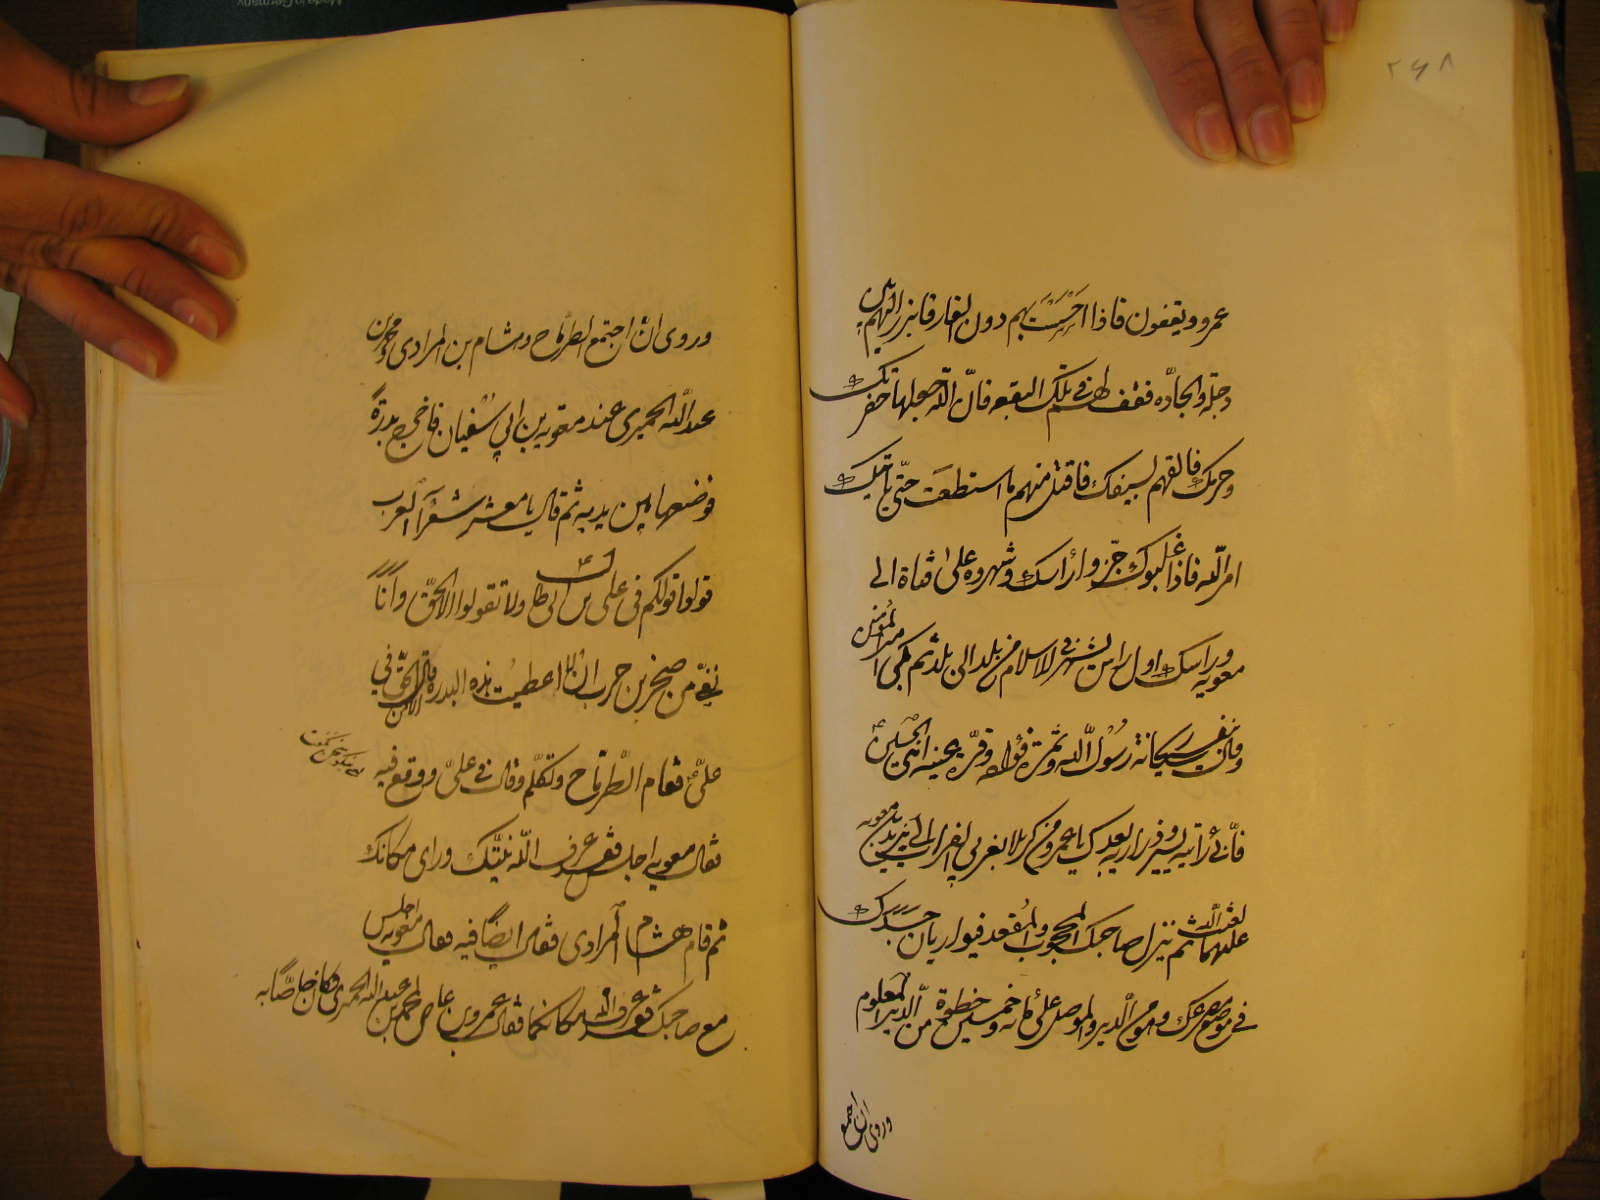 ٢٦٨
عمرو ويقفون فاذا احسست بهم دون الغار فانزل اليهم بين
دجلة والجادّه فقف لهم في تلك البقعه فانّ اللّه جعلها حفرتك
وحرمك فالقهم بسيفك فاقتل منهم ما استطعت حتّى ياتيك
امر اللّه فاذا غلبوك جزّوا راسك وشهروه على قناة الى
معويه وراسك اول راس يشهر في الاسلام من بلد الى بلد ثم بكى امير المؤمنين
وقال بنفسي ريحانة رسول اللّه وثمرة فؤاده وقرّة عينه ابني الحسين ع
فانّي رأيته يسير وذراريه بعدك يا عمرو من كربلا بغربي الفرات الى يزيد بن معويه
عليهما لعنة اللّه ثم ينزل صاحبك المحجوب والمقعد فيواريان جسدك
في موضع مصرعك وهو من الدير والموصل على مائه وخمسين خطوة من الدير المعلوم
وروى ان اجتمع
وروى ان اجتمع الطرمّاح وهشام بن المرادى ومحمد بن
عبد اللّه الحميرى عند معوية بن ابي سفيان فاخرج بدرة
فوضعها بين يديه ثم قال يا معشر شعرآء العرب
قولوا قولكم فى على بن ابى طالب ع ولا تقولوا الا الحقّ وانا
نفيّ من صخر بن حرب ان اعطيت هذه البدرة الا من قال الحقّ في
علىّ ع فقام الطّرمّاح وتكلّم وقال في علىّ ووقع فيه
فقال معويه اجلس فقد عرف اللّه نيّتك وراى مكانك
ثم قام هشام المرادى فقال ايضًا فيه فقال معويه اجلس
مع صاحبك فقد عرف اللّه مكانكما فقال عمرو بن عاص لمحمد بن عبد اللّه الحميرى وكان خاصًّا به